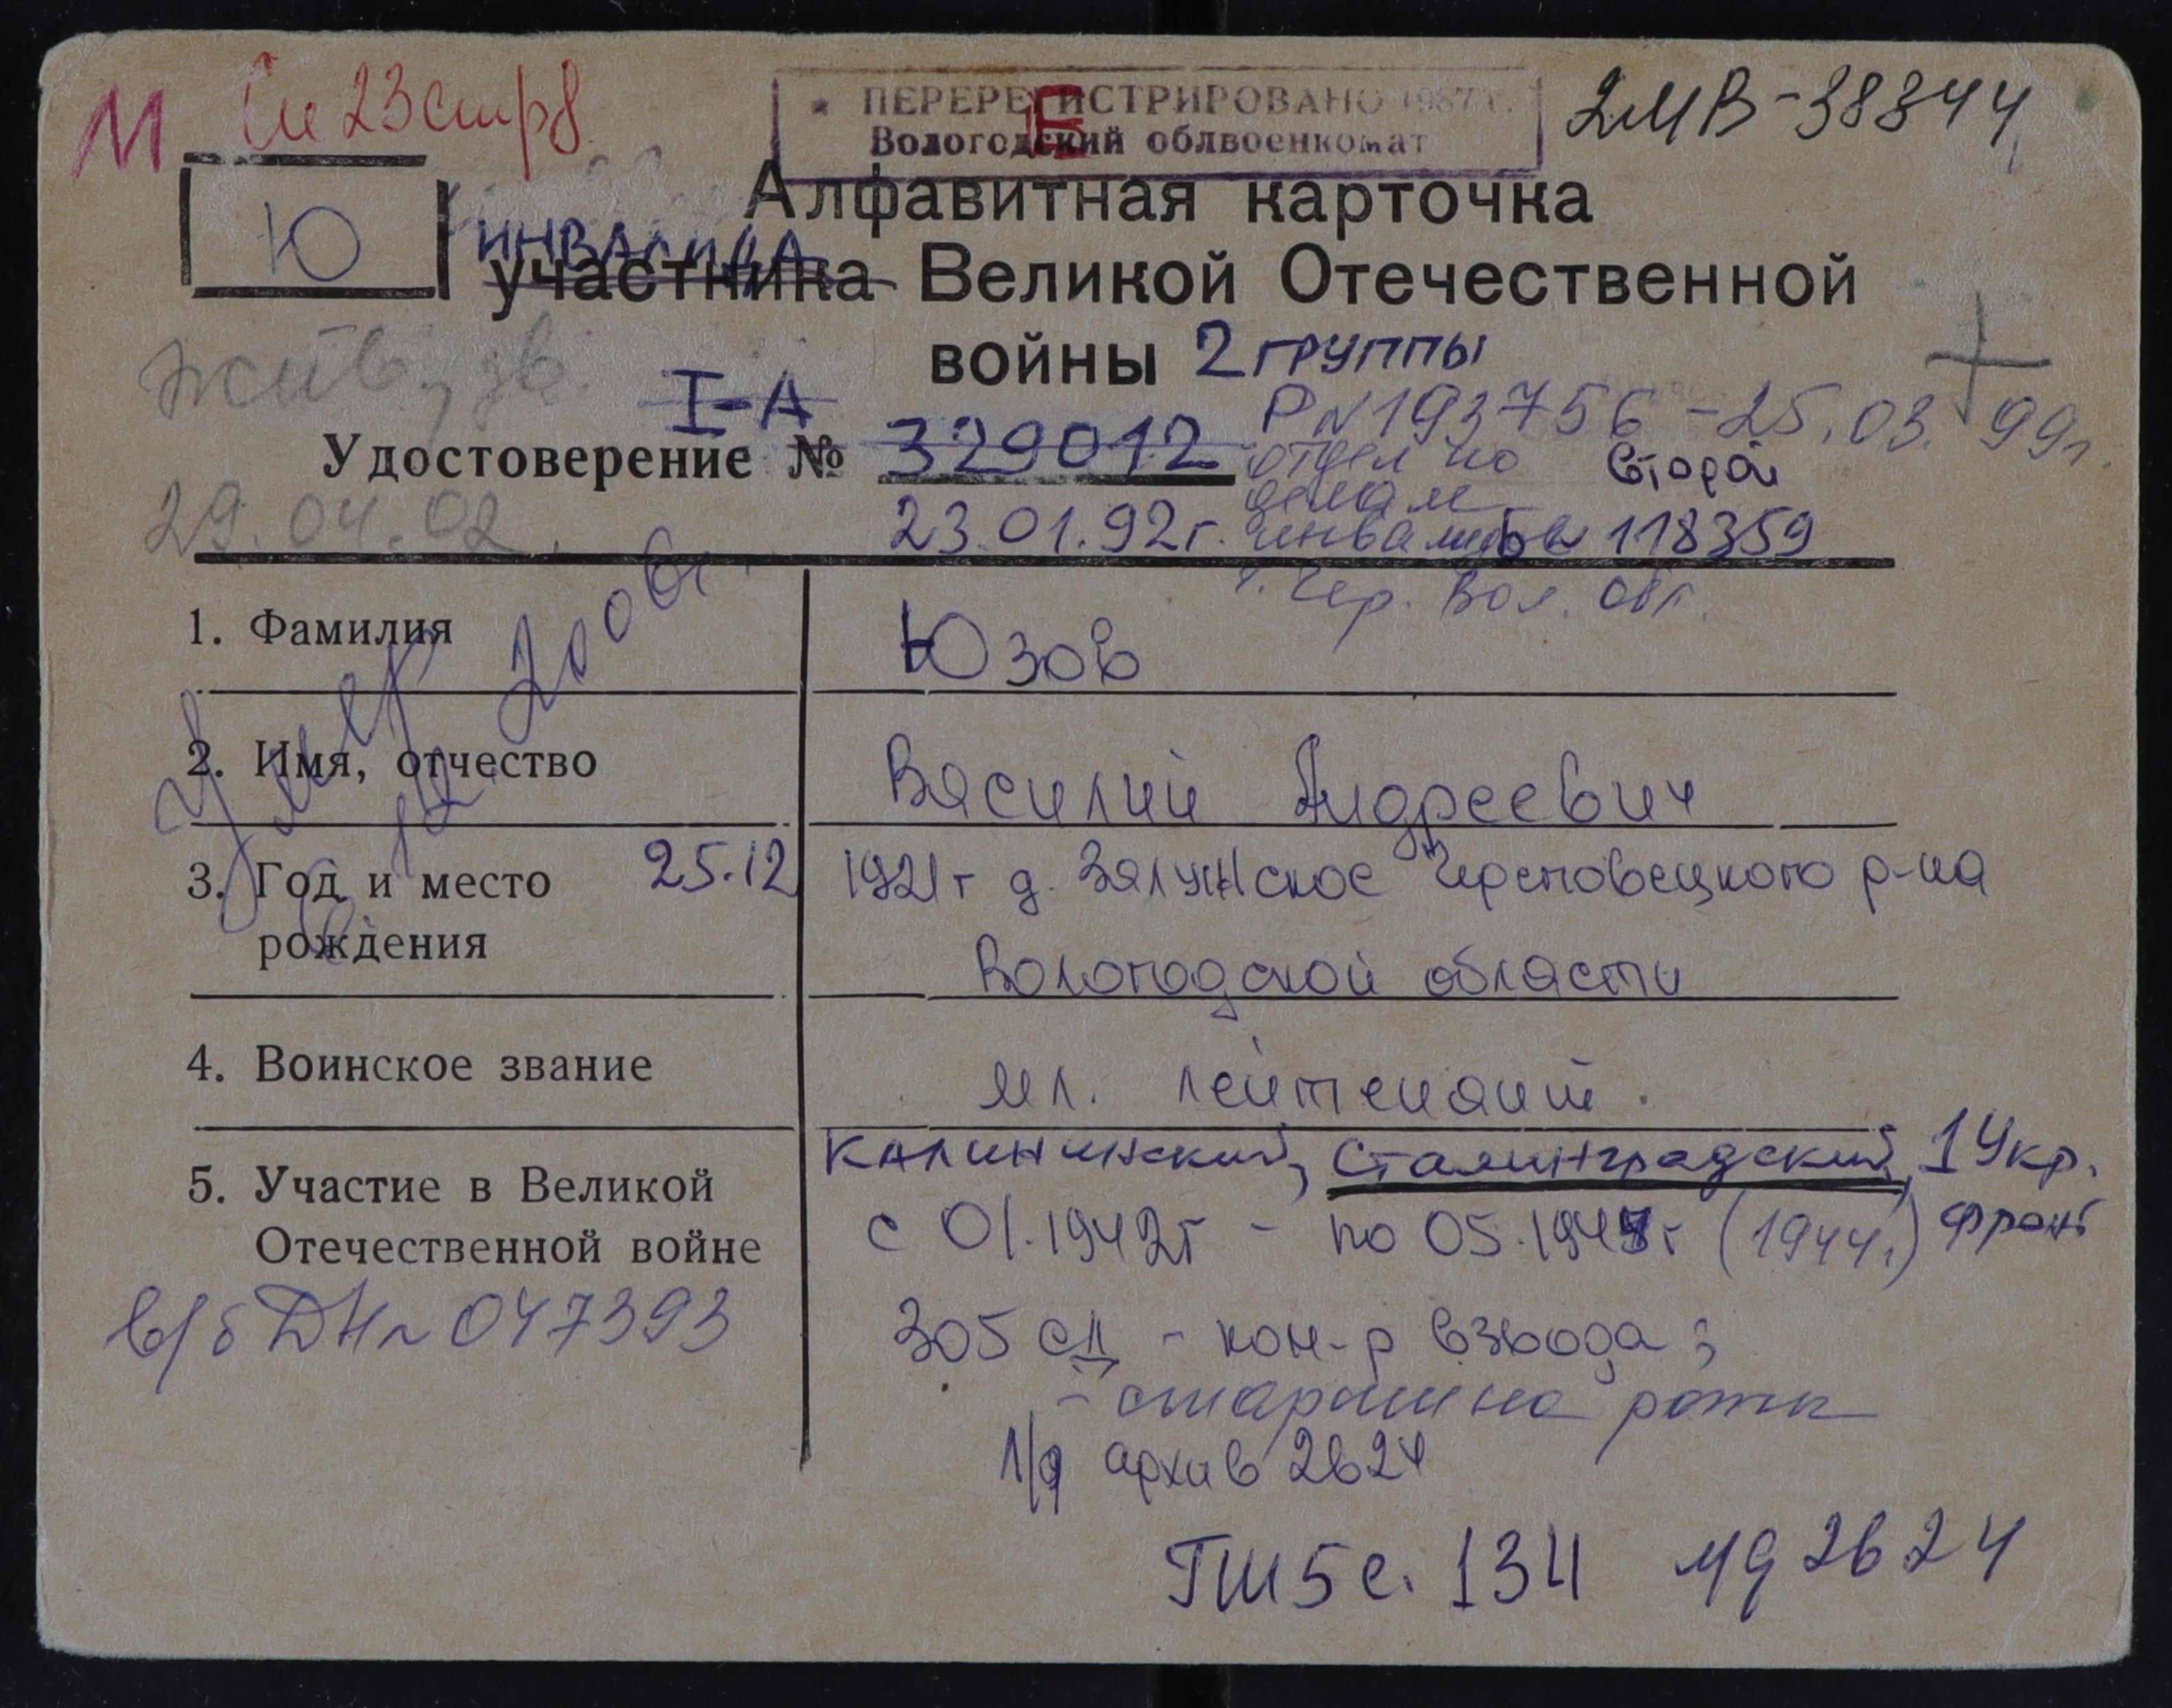 М См 23 стр 8
ПЕРЕРЕГИСТРИРОВАНО 1987 г.
Вологодский облвоенкомат
2МВ-38344
Ю
Алфавитная карточка
ИНВАЛИДА
участника Великой Отечественной
войны 2 группы
I-А
Р №193756 - 25.03.99г.
Удостоверение № 329012
отдел по
делам
инвалидов
второй
29.04.02.
23.01.92г.
118359
г. Чер. Вол. обл.
Умер 2006г.
1. Фамилия
Юзов
2. Имя, отчество
Василий Андреевич
3. Год и место рождения
25.12 1921г д. Залужское Череповецкого р-на
Вологодской области
4. Воинское звание
мл. лейтенант.
5. Участие в Великой
Отечественной войне
Калининский, Сталинградский, 1 Укр.
фронт
с 01.1942г - по 05.1945г (1944г.)
305 сд - ком-р взвода;
- старшина роты
в/б ДН № 047393
л/д архив 2624
ГШ 5 с. 134 лд 2624